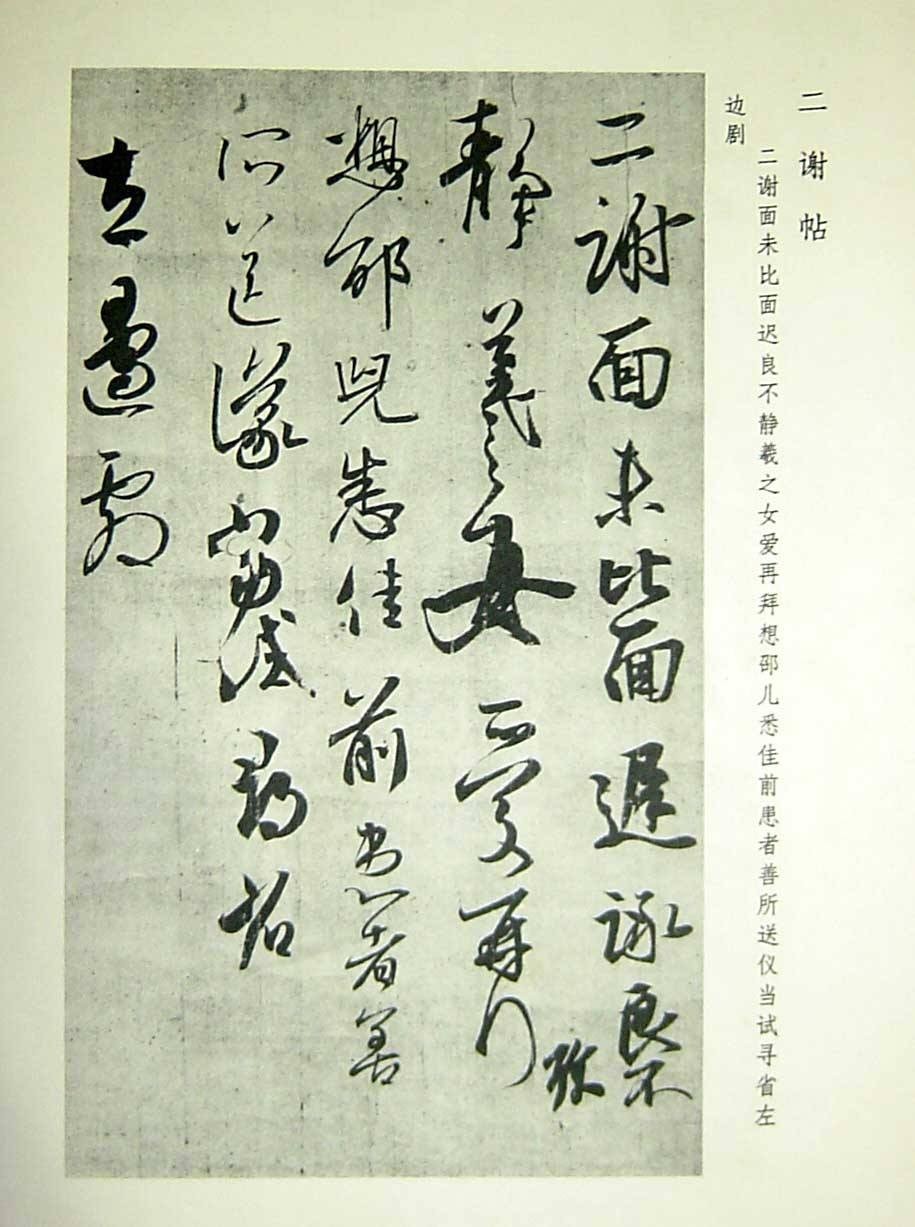 二谢帖
二谢面未比面迟良不静羲之女爱再拜想邵儿悉佳前患者善所送仪当试寻省左
边剧
二謝面未比面遲詠良不
靜羲之女愛再拜
想邵兒悉佳前患者善
所送議當試尋省
左邊劇